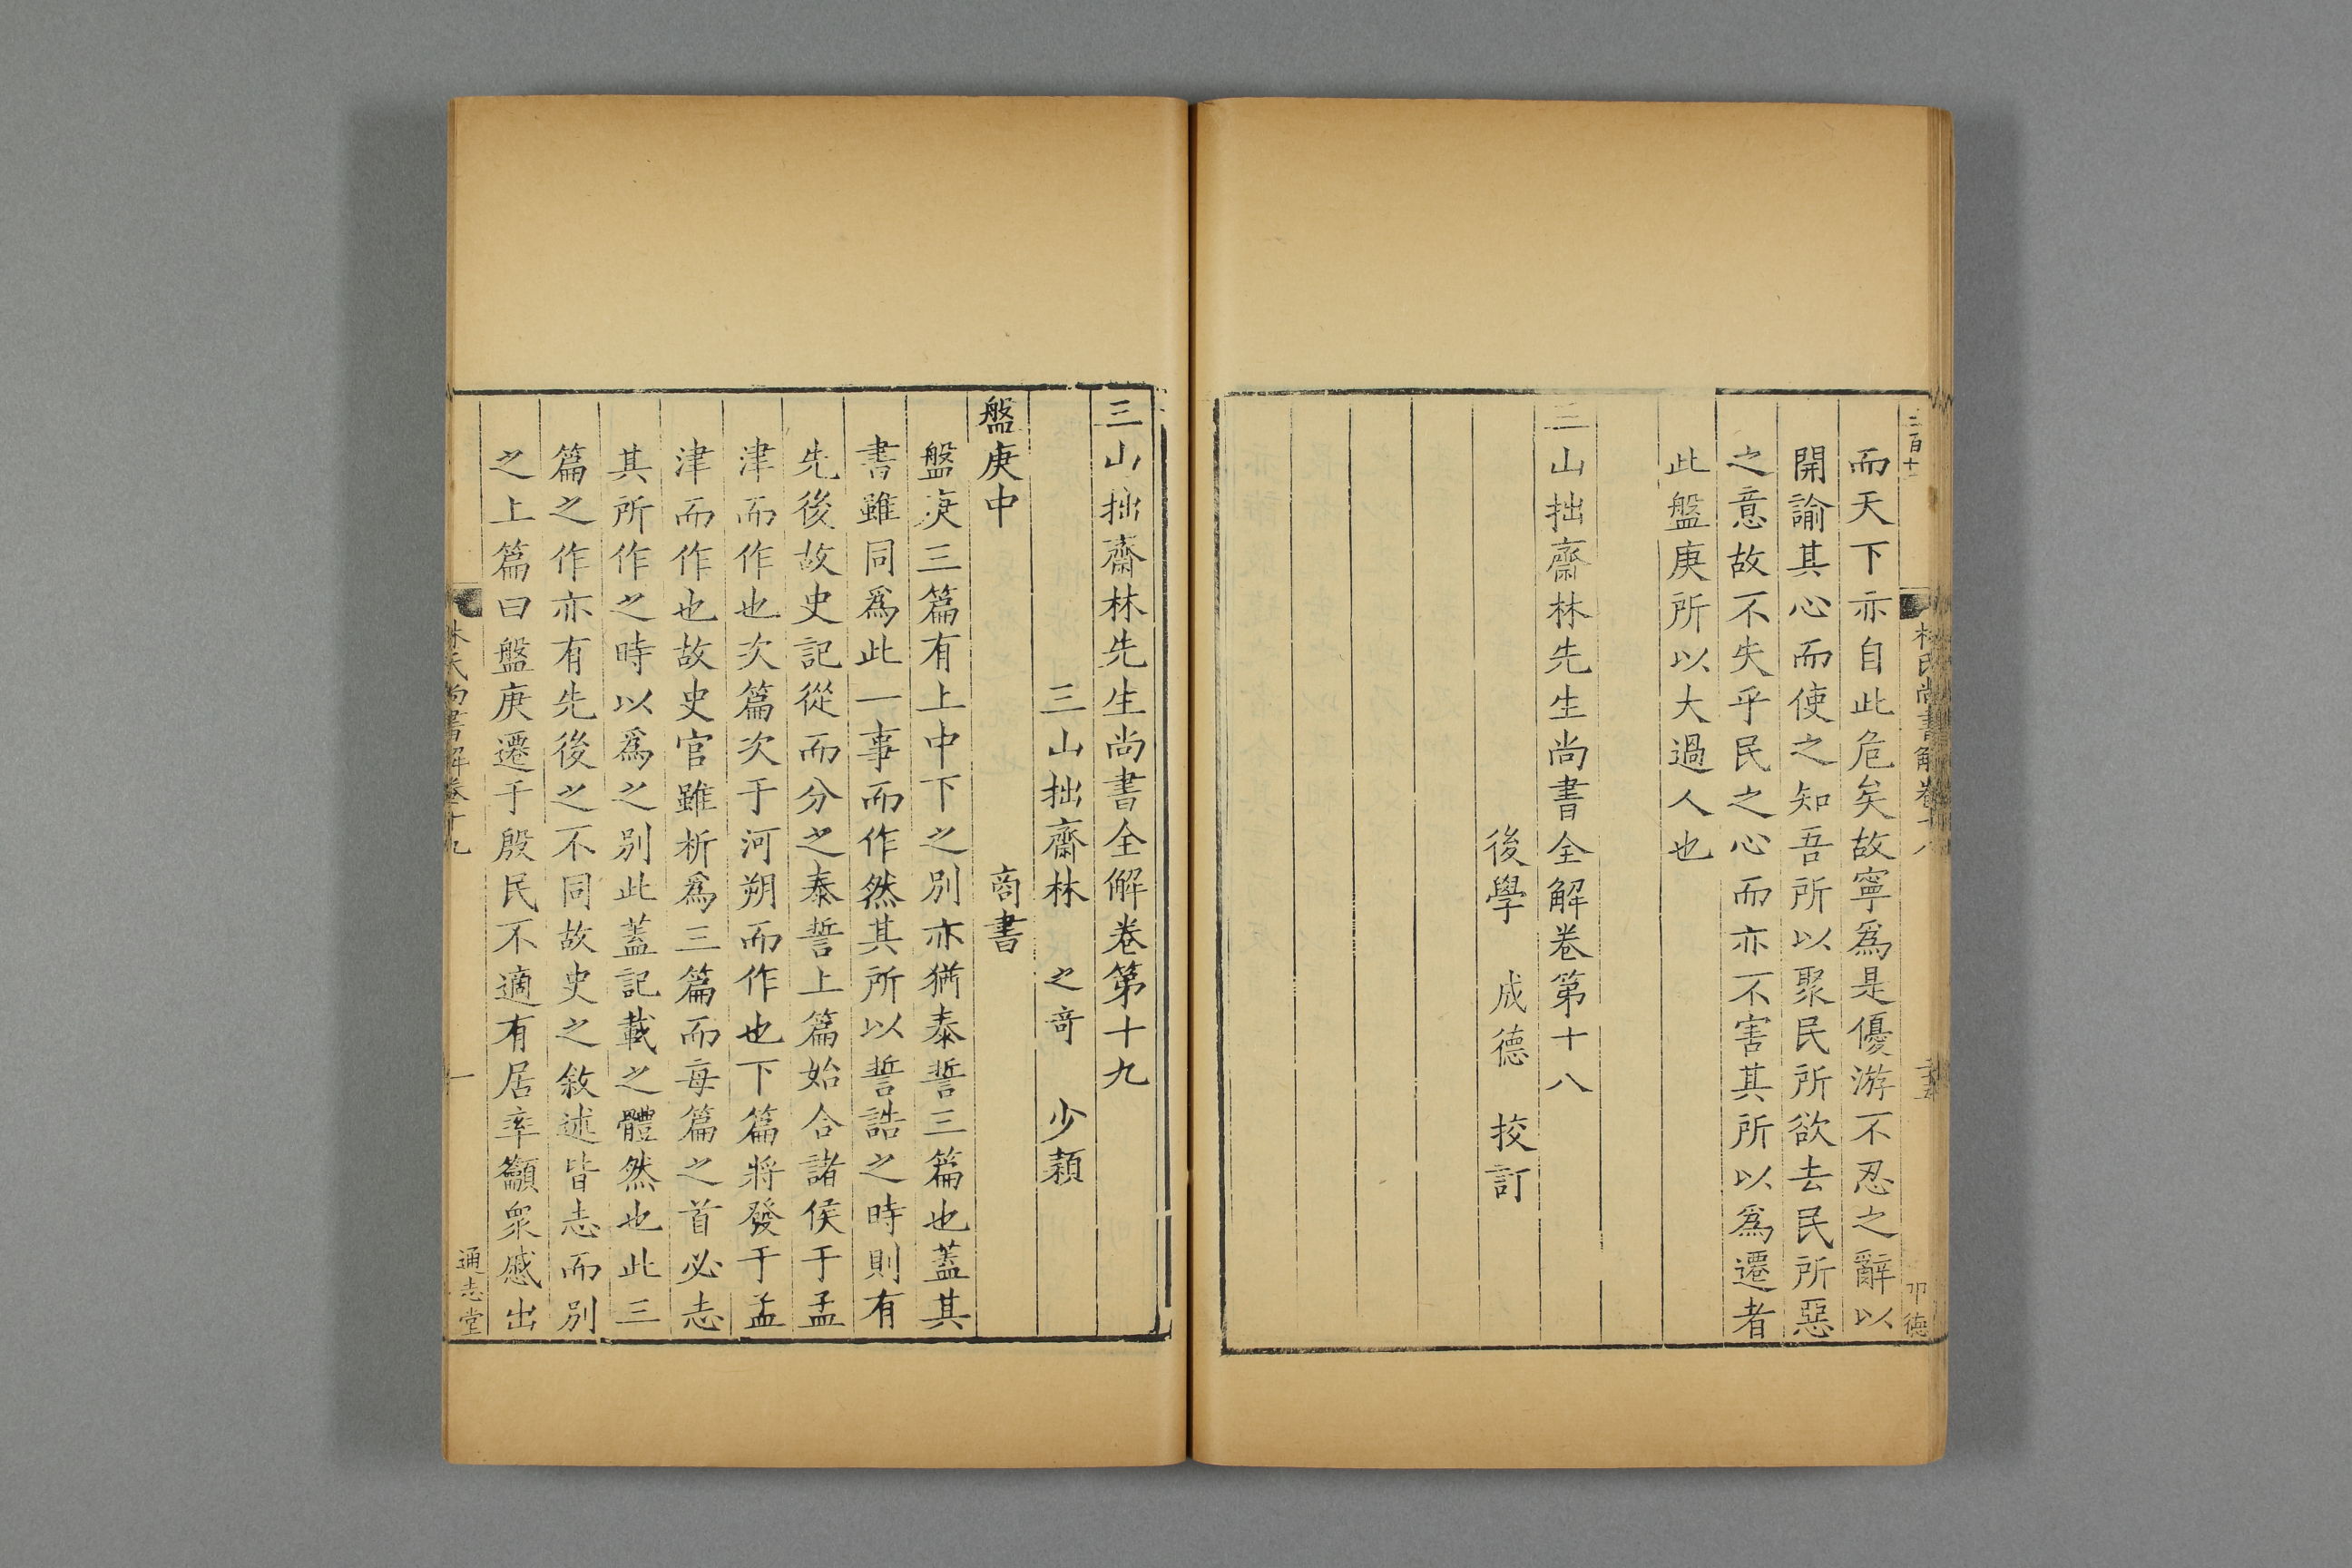 三百十
林氏尚書解卷十八
而天下亦自此危矣故寧爲是優游不忍之辭以
開諭其心而使之知吾所以聚民所欲去民所惡
之意故不失乎民之心而亦不害其所以爲遷者
此盤庚所以大過人也
三山拙齋林先生尚書全解卷第十八
後學 成德 挍訂
三山拙齋林先生尚書全解卷第十九
三山拙齋林 之奇 少穎
盤庚中 商書
盤庚三篇有上中下之別亦猶泰誓三篇也蓋其
書雖同爲此一事而作然其所以誓誥之時則有
先後故史記從而分之泰誓上篇始合諸侯于孟
津而作也次篇次于河朔而作也下篇將發于孟
津而作也故史官雖析爲三篇而每篇之首必志
其所作之時以爲之別此蓋記載之體然也此三
篇之作亦有先後之不同故史之敘述皆志而別
之上篇曰盤庚遷于殷民不適有居率籲衆慼出
林氏尚書解卷十九
一
通志堂